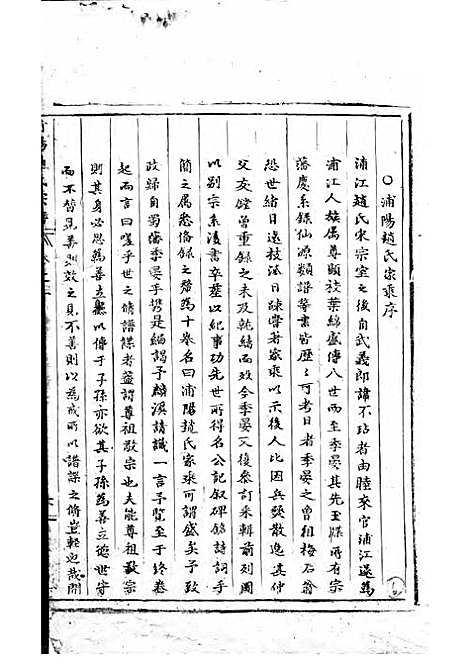 ○浦陽趙氏家乘序
浦江趙氏宋宗室之後自武義郎諱不玷者由睦來官浦江遂為
浦江人族属尊顯枝葉綿盛傳八世而至季晏其先玉牒所有宗
藩慶系錄仙源類譜等書皆歷歷可考日者季晏之曾祖梅石翁
恐世緒日遠枝派日疎嘗著家乘以示後人比因兵燹散逸其仲
父友鏜曽重錄之未及就緒而歿今季晏又復參訂采輯前列圖
以别宗系後書卒塟以紀事功先世所得名公記叙碑銘詩詞手
簡之属悉俻錄之釐為十卷名曰浦陽趙氏家乘可謂盛矣予致
政歸自蜀藩季晏手携是編謁予麟溪請識一言予覽至于終卷
起而言曰嗟乎世之脩譜諜者葢謂尊祖敬宗也夫能尊祖敬宗
則其身必思為善立德以傳于子孫亦欲其子孫為善立德世守
而不替見善則效之見不善則以為戒所以譜諜之脩豈輕也哉間